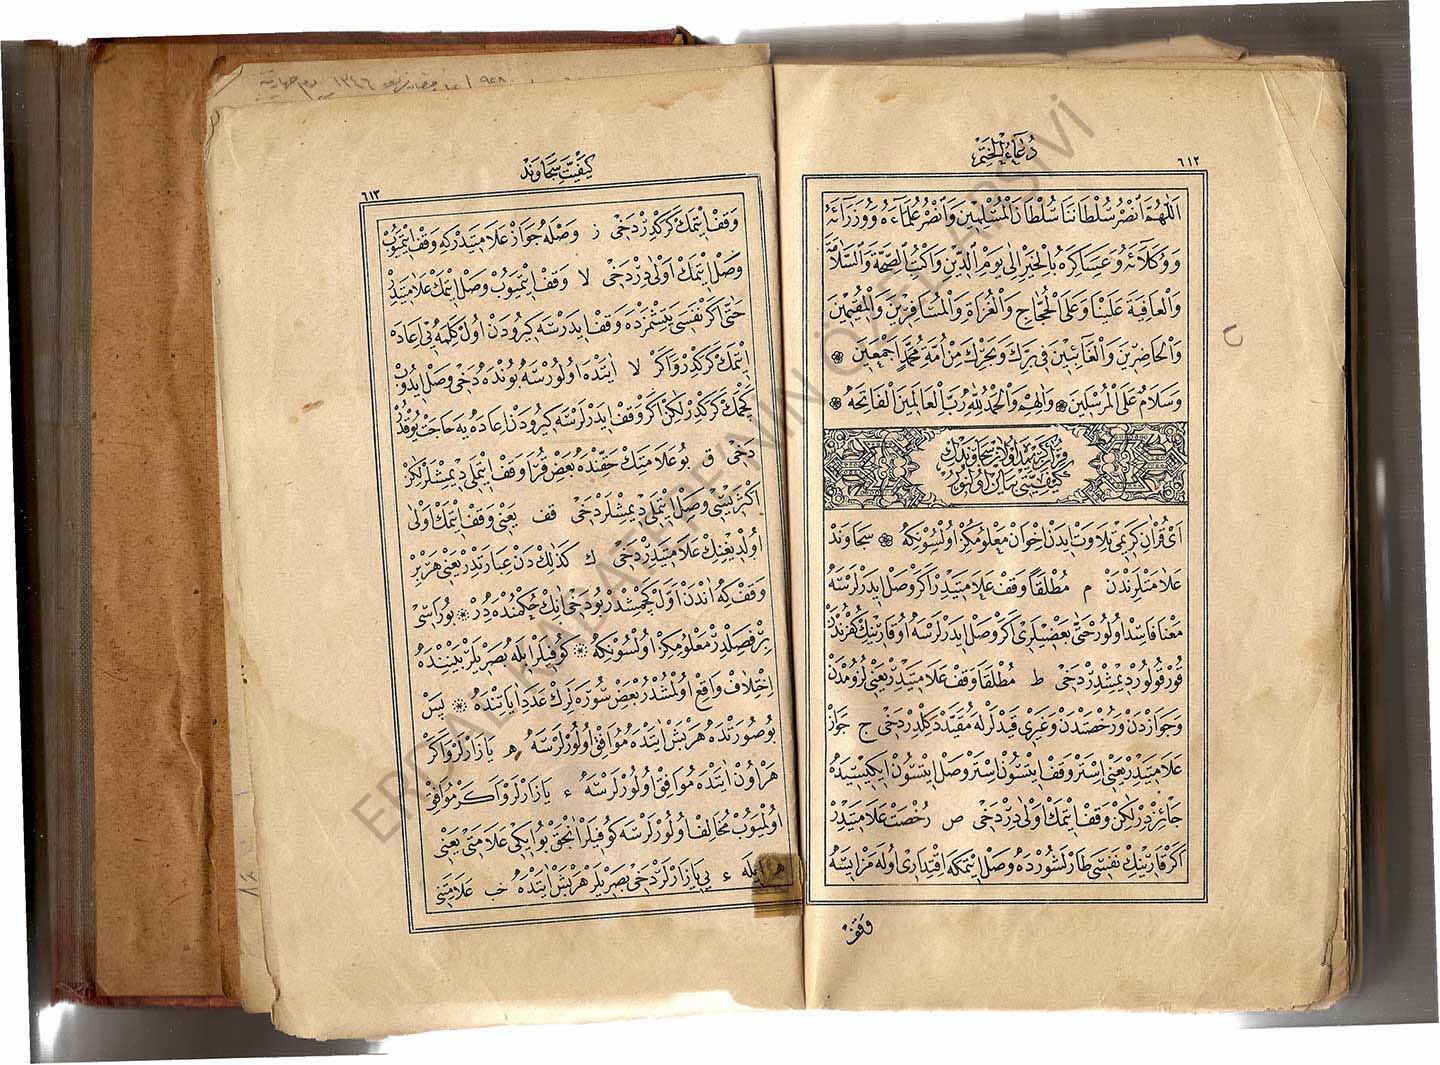 دُعَاءُ الْخَتْمِ
٦١٢
اَللّٰهُمَّ انْصُرْ سُلْطَانَنَا سُلْطَانَ الْمُسْلِمِينَ وَانْصُرْ عُلَمَاءَهُ وَوُزَرَائَهُ
وَوُكَلَائَهُ وَعَسَاكِرَهُ بِالْخَيْرِ اِلٰى يَوْمِ الدِّينِ وَاكْتُبِ الصِّحَّةَ وَالسَّلَامَةَ
وَالْعَافِيَةَ عَلَيْنَا وَعَلَى الْحُجَّاجِ وَالْغُزَاةِ وَالْمُسَافِرِينَ وَالْمُقِيمِينَ
وَالْحَاضِرِينَ وَالْغَائِبِينَ فِي بَرِّكَ وَبَحْرِكَ مِنْ اُمَّةِ مُحَمَّدٍ اَجْمَعِينَ
وَسَلَامٌ عَلَى الْمُرْسَلِينَ وَاٰلِهِمْ وَالْحَمْدُ لِلّٰهِ رَبِّ الْعَالَمِينَ الْفَاتِحَهْ
قُرْاٰنِ كَرِيمْدَه اُولَانْ سَجَاوَنْدِكْ
كَيْفِيَّتِى بَيَانْ اُولُنُورْ
اَىْ قُرْاٰنِ كَرِيمِى تِلَاوَتْ اِيدَنْ اِخْوَانْ مَعْلُومُكُزْ اُولْسُونْكِه سَجَاوَنْدْ
عَلَامَتْلَرِنْدَنْ م مُطْلَقًا وَقْفْ عَلَامَتِيدِرْ اَكَرْ وَصْلْ اِيدَرْلَرْسَه
مَعْنَا فَاسِدْ اُولُورْ حَتّٰى بَعْضِيلَرِى اَكَرْ وَصْلْ اِيدَرْلَرْسَه اُو قَارِئِنِكْ كُفْرِنْدَنْ
قُورْقُولُورْ دِيمِشْدِرْ دَخِى ط مُطْلَقَا وَقْفْ عَلَامَتِيدِرْ يَعْنِى لُزُومْدَنْ
وَجَوَازْدَنْ وَرُخْصَتْدَنْ وَغَيْرِى قَيْدْلَرْلَه مُقَيَّدْ دَكِلْدِرْ دَخِى ج جَوَازْ
عَلَامَتِيدِرْ يَعْنِى اِسْتَرْ وَقْفْ اِيتْسُونْ اِسْتَرْ وَصْلْ اِيتْسُونْ اِيكِيسِيدَه
جَائِزْدِرْ لٰكِنْ وَقْفْ اِيتْمَكْ اَوْلٰى دِرْ دَخِى ص رُخْصَتْ عَلَامَتِيدِرْ
اَكَرْ قَارِئِنِكْ نَفَسِى طَارْلَشُورْدَه وَصْلْ اِيتْمَكَه اِقْتِدَارِى اُولَهْمَزْ اِيسَه
وَقْفْ
كَيْفِيَّتِ سَجَاوَنْدْ
٦١٣
وَقْفْ اِيتْمَكْ كَرَكْدِرْ دَخِى ز وَصْلَه جَوَازْ عَلَامَتِيدِرْ كِه وَقْفْ اِيتْمَيُوبْ
وَصْلْ اِيتْمَكْ اَوْلٰى دِرْ دَخِى لا وَقْفْ اِيتْمَيُوبْ وَصْلْ اِيتْمَكْ عَلَامَتِيدِرْ
حَتّٰى اَكَرْ نَفَسِى يَتِشْمَزْدَه وَقْفْ اِيدَرْسَه كِيرُودَنْ اُولْ كَلِمَه نِى اِعَادَه
اِيتْمَكْ كَرَكْدِرْ وَاَكَرْ لا اٰيَتْدَه اُولُورْسَه بُونْدَه دَخِى وَصْلْ اِيدُوبْ
كَچْمَكْ كَرَكْدِرْ لٰكِنْ اَكَرْ وَقْفْ اِيدَرْلَرْسَه كِيرُودَنْ اِعَادَه يَه حَاجَتْ يُوقْدُرْ
دَخِى ق بُو عَلَامَتِكْ حَقِّنْدَه بَعْضْ قُرَّا وَقْفْ اِيتْمَلِى دِيمِشْلَرْ لٰكِنْ
اَكْثَرِيسِى وَصْلْ اِيتْمَلِى دِيمِشْلَرْ دَخِى قف يَعْنِى وَقْفْ اِيتْمَكْ اَوْلٰى
اُولْدِيغِنِكْ عَلَامَتِيدِرْ دَخِى ك كَذٰلِكْ دَنْ عِبَارَتْدِرْ يَعْنِى هَرْ بِرْ
وَقْفْ كِه اَنْدَنْ اَوَّلْ كَچْمِشْدِرْ بُو دَخِى اَنِكْ حُكْمِنْدَه دُرْ بُورَاسِى
بِرْ فَصِلْدِرْ مَعْلُومُكُزْ اُولْسُونْكِه كُوفِيلَرْ اِيلَه بَصْرِيلَرْ بَيْنِنْدَه
اِخْتِلَافْ وَاقِعْ اُولْمُشْدُرْ بَعْضْ سُورَه لَرِكْ عَدَدِ اٰيَاتِنْدَه پَسْ
بُو صُورَتْدَه هَرْ بَشْ اٰيَتْدَه مُوَافِقْ اُولُورْلَرْسَه ه يَازَارْلَرْ وَاَكَرْ
هَرْ اُونْ اٰيَتْدَه مُوَافِقْ اُولُورْلَرْسَه ء يَازَارْلَرْ وَاَكَرْ مُوَافِقْ
اُولْمَيُوبْ مُخَالِفْ اُولُورْلَرْسَه كُوفِيلَرْ اَنْجَقْ بُو اِيكِى عَلَامَتِى يَعْنِى
ه اِيلَه ء يِى يَازَارْلَرْ دَخِى بَصْرِيلَرْ هَرْ بَشْ اٰيَتْدَه خب عَلَامَتِنِى
ERDAL KARA ÖZEL ARŞİVİ